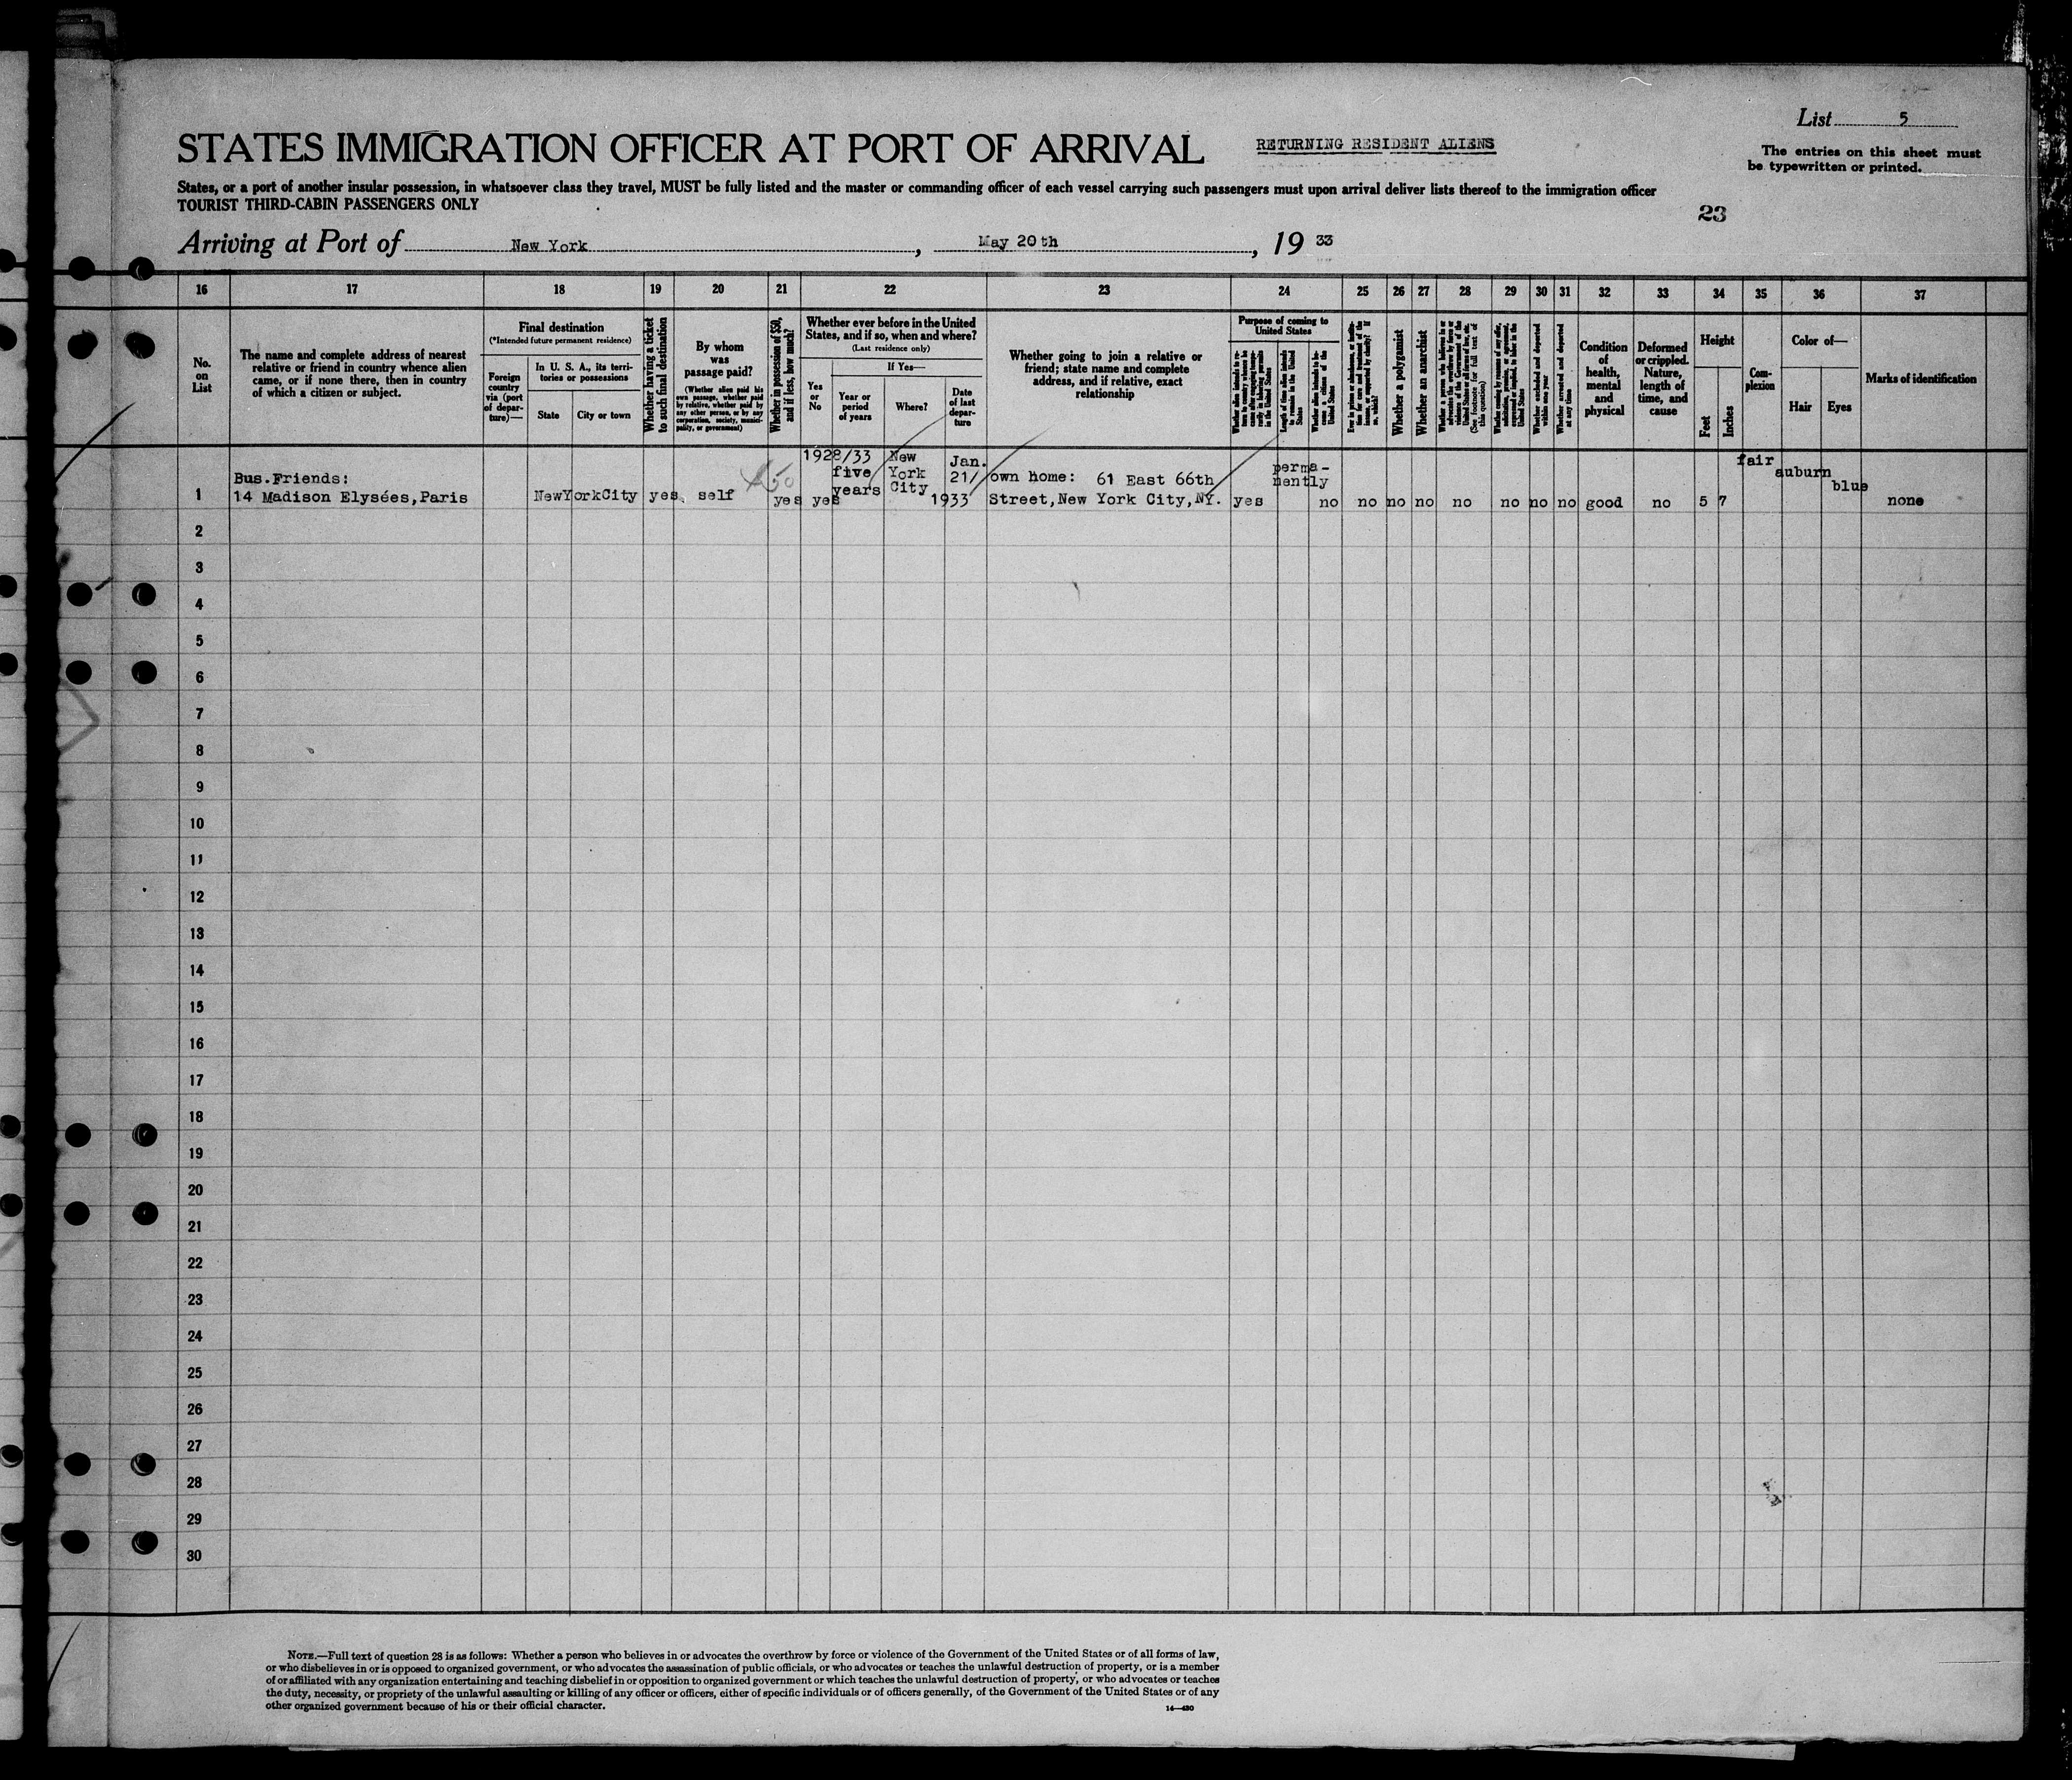 List 5
STATES IMMIGRATION OFFICER AT PORT OF ARRIVAL
RETURNING RESIDENT ALIENS
The entries on this sheet must
be typewritten or printed.
States, or a port of another insular possession, in whatsoever class they travel, MUST be fully listed and the master or commanding officer of each vessel carrying such passengers must upon arrival deliver lists thereof to the immigration officer
TOURIST THIRD-CABIN PASSENGERS ONLY
23
Arriving at Port of New York, May 20th, 19 33
16 17 18 19 20 21 22 23 24 25 26 27 28 29 30 31 32 33 34 35 36 37
No.
on
List
The name and complete address of nearest
relative or friend in country whence alien
came, or if none there, then in country
of which a citizen or subject.
Final destination
(*Intended future permanent residence)
Foreign
country
via (port
of depar-
ture)—
In U. S. A., its terri-
tories or possessions
State
City or town
Whether having a ticket
to such final destination
By whom
was
passage paid?
(Whether alien paid his
own passage, whether paid
by relative, whether paid by
any other person, or by any
corporation, society, munici-
pality, or government)
Whether in possession of $50,
and if less, how much?
Whether ever before in the United
States, and if so, when and where?
(Last residence only)
Yes
or
No
If Yes—
Year or
period
of years
Where?
Date
of last
depar-
ture
Whether going to join a relative or
friend; state name and complete
address, and if relative, exact
relationship
Purpose of coming to
United States
Whether alien intends to re-
turn to country whence he
came after engaging tempo-
rarily in laboring pursuits
in the United States
Length of time alien intends
to remain in the United
States
Whether alien intends to be-
come a citizen of the
United States
Whether a polygamist
Whether an anarchist
(See footnote for full text of
this question)
Whether excluded and deported
within one year
Whether arrested and deported
at any time
Condition
of
health,
mental
and
physical
Deformed
or crippled.
Nature,
length of
time, and
cause
Height
Feet
Inches
Com-
plexion
Color of—
Hair
Eyes
Marks of identification
1
Bus.Friends:
14 Madison Elysées,Paris
NewYorkCity
yes
self
$50
yes
yes
1928/33
five
years
New
York
City
Jan.
21/
1933
own home: 61 East 66th
Street,New York City,NY.
yes
perma-
nently
no
no
no
no
no
no
no
no
good
no
5 7
fair
auburn
blue
none
2
3
4
5
6
7
8
9
10
11
12
13
14
15
16
17
18
19
20
21
22
23
24
25
26
27
28
29
30
NOTE.—Full text of question 28 is as follows: Whether a person who believes in or advocates the overthrow by force or violence of the Government of the United States or of all forms of law,
or who disbelieves in or is opposed to organized government, or who advocates the assassination of public officials, or who advocates or teaches the unlawful destruction of property, or is a member
of or affiliated with any organization entertaining and teaching disbelief in or opposition to organized government or which teaches the unlawful destruction of property, or who advocates or teaches
the duty, necessity, or propriety of the unlawful assaulting or killing of any officer or officers, either of specific individuals or of officers generally, of the Government of the United States or of any
other organized government because of his or their official character.
14—430